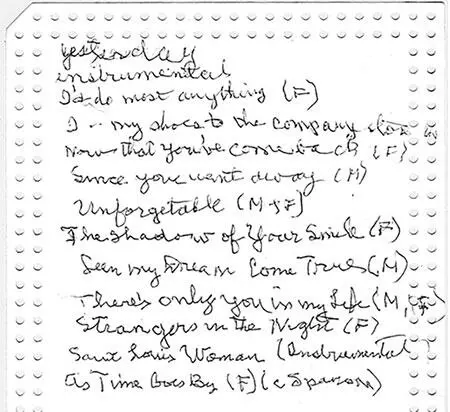 yesterday
instrumental
I'd do most anything (F)
I -- my shoes to the company store
Now that you've come back (F)
Since you went away (M)
Unforgetable (M + F)
The Shadow of Your Smile (F)
Seen my Dream Come True (M)
There's only you in my Life (M, + F)
Strangers in the Night (F)
Saint Louis Woman (Instrumental
As Time Goes By (F) (